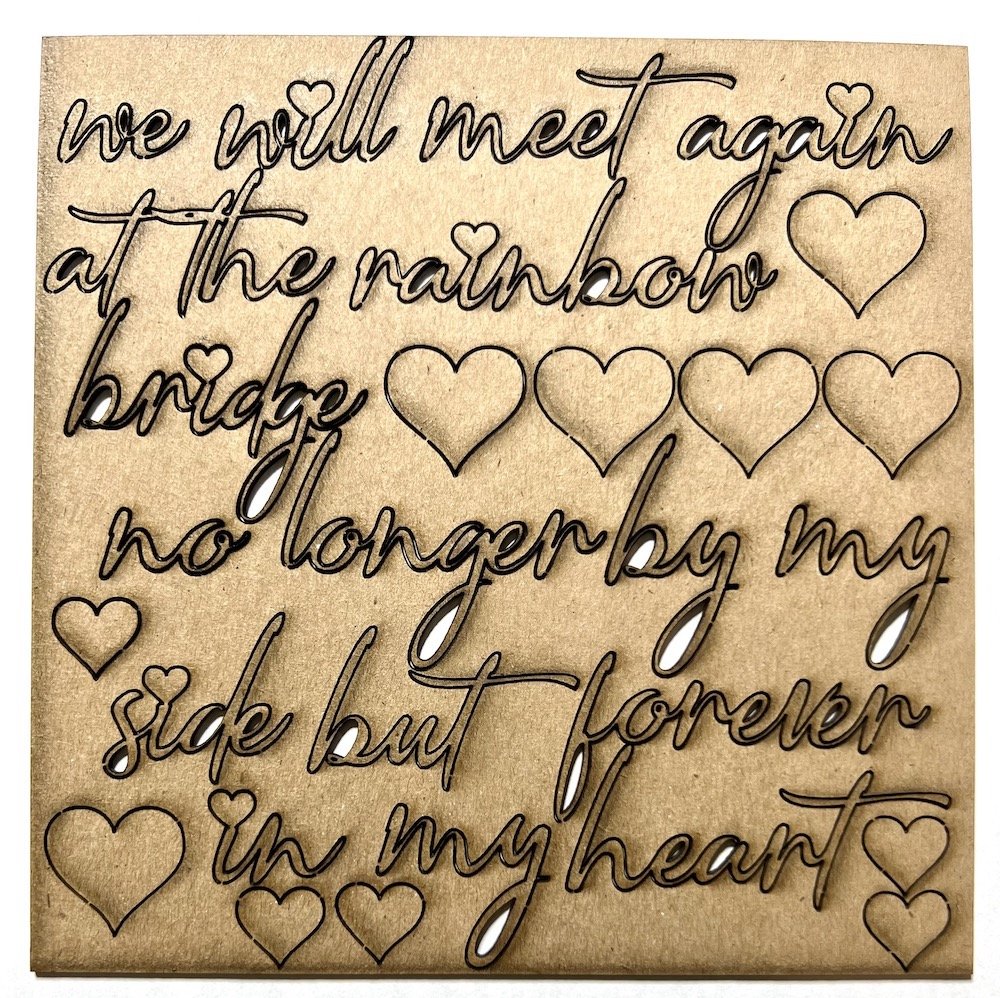 we will meet again
at the rainbow
bridge
no longer by my
side but forever
in my heart